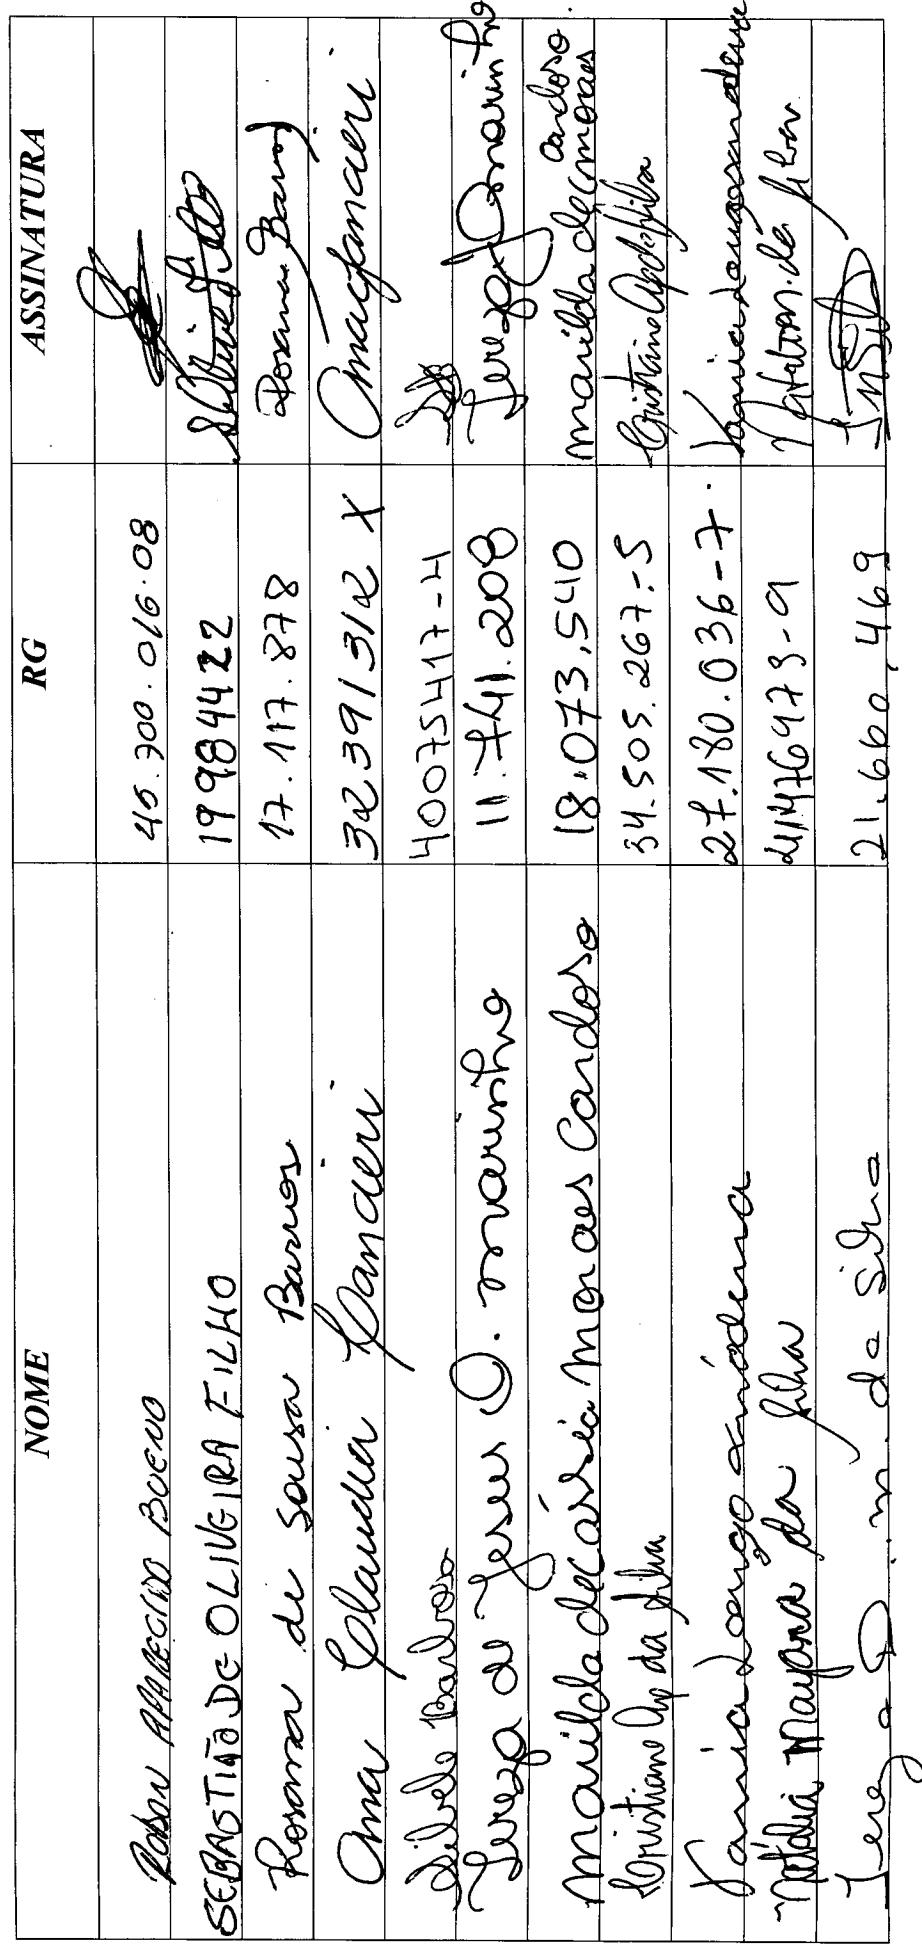 NOME RG ASSINATURA
Robson APARECIDO BUENO 45.700.016.08
SEBASTIÃO DE OLIVEIRA FILHO 19984422
Rosana de Sousa Barros 17.117.878 Rosana Barros
Ana Claudia Cancieri 32391312 X
Barbosa 40075417-4
Tereza de Jesus O. marinho 11.741.208 Tereza J marinho
Marilda de Cássia Moraes Cardoso 18.073.540 marilda de C moraes Cardoso
Cristiane Ap da Silva 34.505.267-5 Cristiane Ap da Silva
Vania Longo 27.180.036-7
Natália Mayara da Silva Natália m. da silva
Tereza m. da Silva 21.660.469